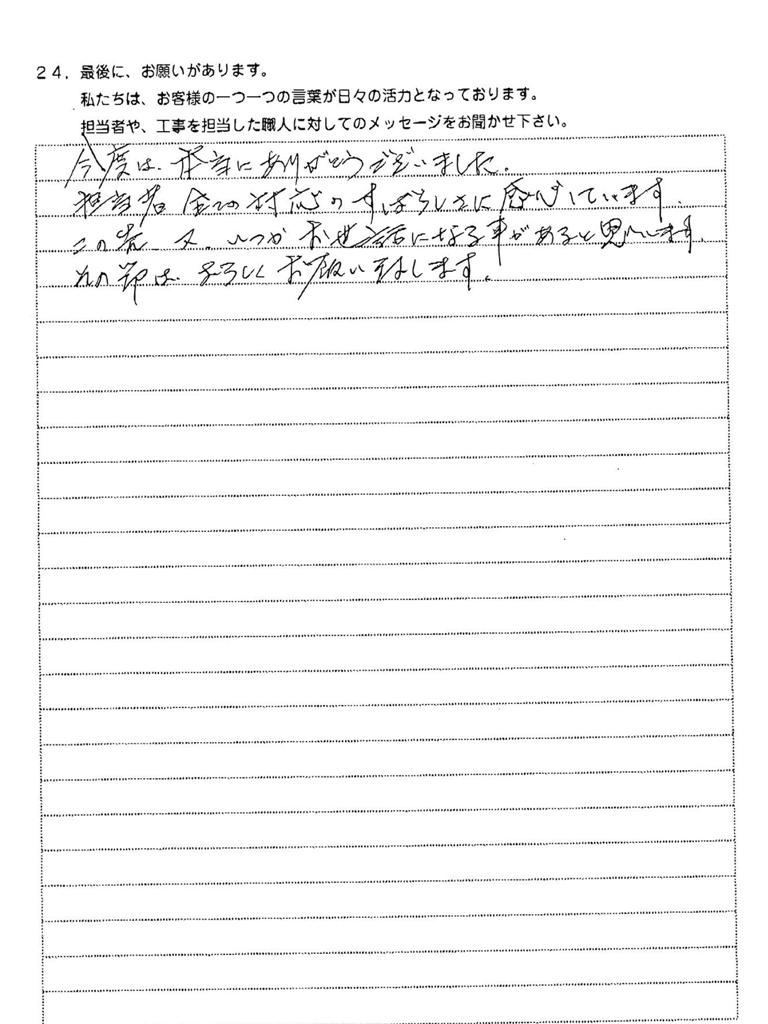 24. 最後に、お願いがあります。
私たちは、お客様の一つ一つの言葉が日々の活力となっております。
担当者や、工事を担当した職人に対してのメッセージをお聞かせ下さい。
今度は、本当にありがとうございました。
担当者 全ての対応のすばらしさに感心しています。
この先、又、いつかお世話になる事があると思います。
その節は、よろしくお願い致します。